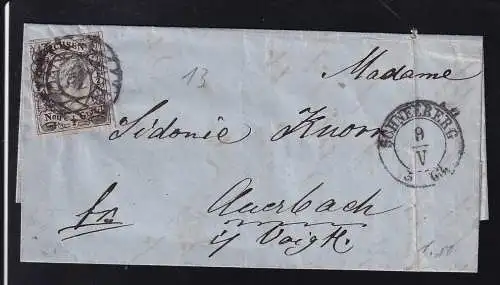 SACHSEN
13
Madame
Sidonie Knorr
SCHNEEBERG
9
V
fr.
Auerbach
i/ Voigtl.